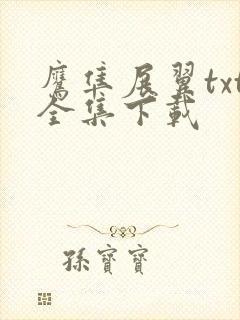 鷹隼展翼txt
全集下載
孫寶寶